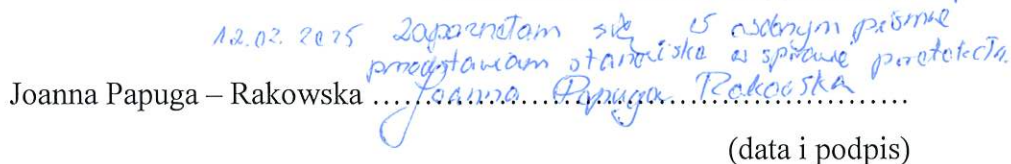 12.02.2025 Zapoznałam się, w osobnym piśmie
przedstawiam stanowisko w sprawie protokołu.
Joanna Papuga – Rakowska ....Joanna Papuga Rakowska....
(data i podpis)